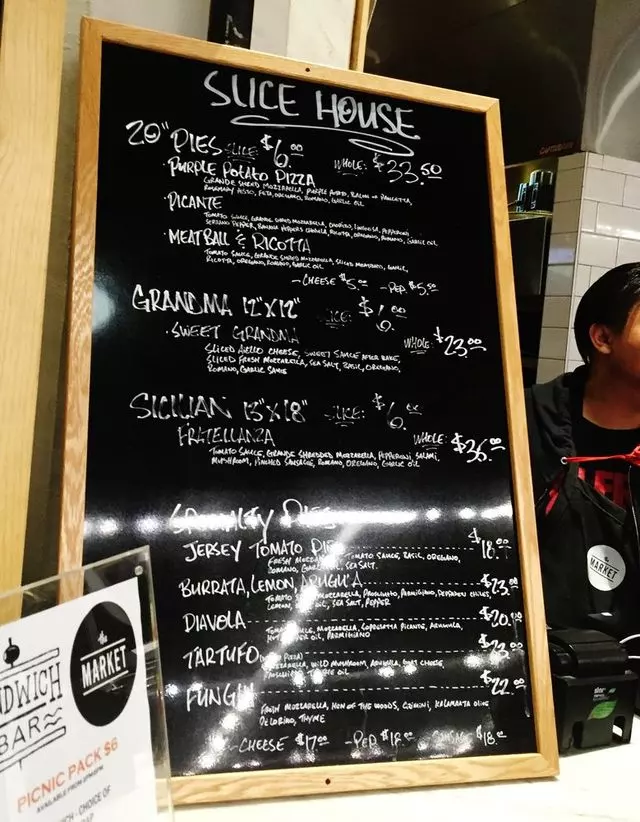 SLICE HOUSE
20" PIES SLICE: $6.00 WHOLE: $33.50
· PURPLE POTATO PIZZA
GRANDE SHRED MOZZARELLA, PURPLE POTATO, BACON OR PANCETTA,
ROSEMARY FETA, OREGANO, ROMANO, GARLIC OIL
· PICANTE
TOMATO SAUCE, GRANDE SHRED MOZZARELLA, LINGUISA, PEPPERONI,
SERRANO PEPPER, BANANA PEPPERS RICOTTA, OREGANO, ROMANO, GARLIC OIL
· MEATBALL & RICOTTA
TOMATO SAUCE, GRANDE SHRED MOZZARELLA, SLICED MEATBALL, GARLIC,
RICOTTA, OREGANO, ROMANO, GARLIC OIL
- CHEESE $5.00 - PEP. $5.50
GRANDMA 12"X12" SLICE: $6.00
WHOLE: $23.00
· SWEET GRANDMA
SLICED CHEESE, SWEET SAUCE AFTER BAKE,
SLICED FRESH MOZZARELLA, SEA SALT, BASIL, OREGANO,
ROMANO, GARLIC SAUCE
SICILIAN 13"X18" SLICE: $6.00
WHOLE: $36.00
FRATELLANZA
TOMATO SAUCE, GRANDE SHREDDED MOZZARELLA, PEPPERONI, SALAMI,
MUSHROOM, PINCHED SAUSAGE, ROMANO, OREGANO, GARLIC OIL
SPECIALTY PIES
JERSEY TOMATO PIE $18.00
FRESH MOZZARELLA, TOMATO SAUCE, BASIL, OREGANO,
ROMANO, GARLIC OIL, SEA SALT.
BURRATA, LEMON, ARUGULA $23.00
TOMATO MOZZARELLA, PROSCIUTTO, PARMIGIANO, PEPPADEW CHILIES,
LEMON, OIL, SEA SALT, PEPPER
DIAVOLA $20.00
TOMATO SAUCE, MOZZARELLA, SOPRESSATA PICANTE, ARUGULA,
HOT PEPPER OIL, PARMIGIANO
TARTUFO $23.00
MOZZARELLA, WILD MUSHROOM, ARUGULA, GOAT CHEESE,
OIL
FUNGHI $22.00
FRESH MOZZARELLA, HEN OF THE WOODS, CRIMINI, KALAMATA OLIVE
PECORINO, THYME
- CHEESE $17.00 - PEP $18.00 SAUSAGE $18.00
the
MARKET
NDWICH
BAR
PICNIC PACK $6
CHOICE OF
MARKET